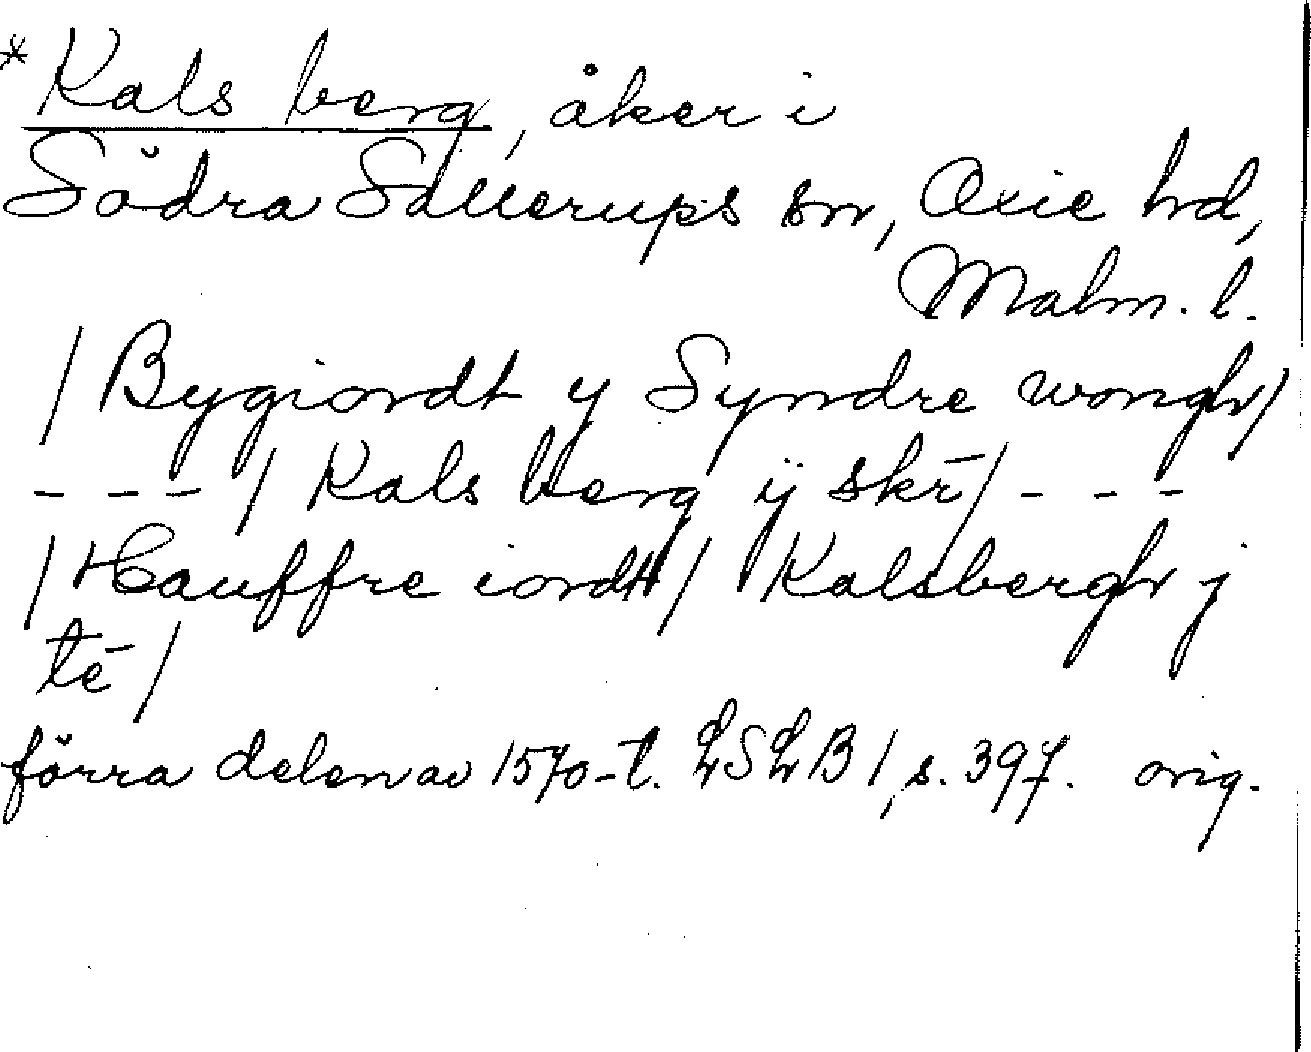 *Kals berg, åker i
Södra Sallerups sn, Oxie hd,
Malm. l.
/ Bygiordt y Syndre wongh /
- - - / Kals berg ij skr̄ / - - -
/ Hauffre iordt / Kalsbergh j
tē /
förra delen av 1570-t. LSLB 1, s. 397. orig.